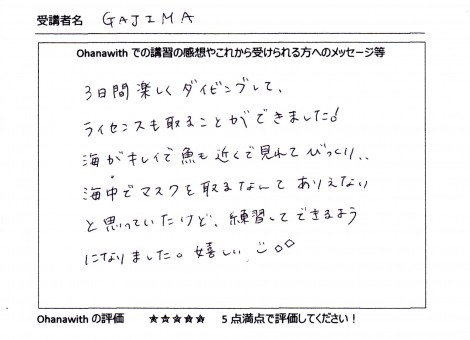 受講者名 GAJIMA
Ohanawith での講習の感想やこれから受けられる方へのメッセージ等
3日間楽しくダイビングして、
ライセンスも取ることができました!
海がキレイで魚も近くで見れてびっくり..
海中でマスクを取るなんてありえない
と思っていたけど、練習してできるよう
になりました。嬉しい
Ohanawith の評価 ★★★★★ 5点満点で評価してください!